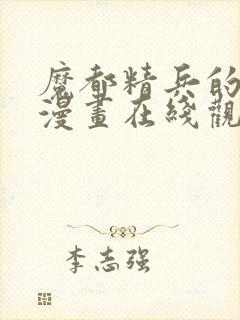 魔都精兵的
漫畫在綫觀
李志强